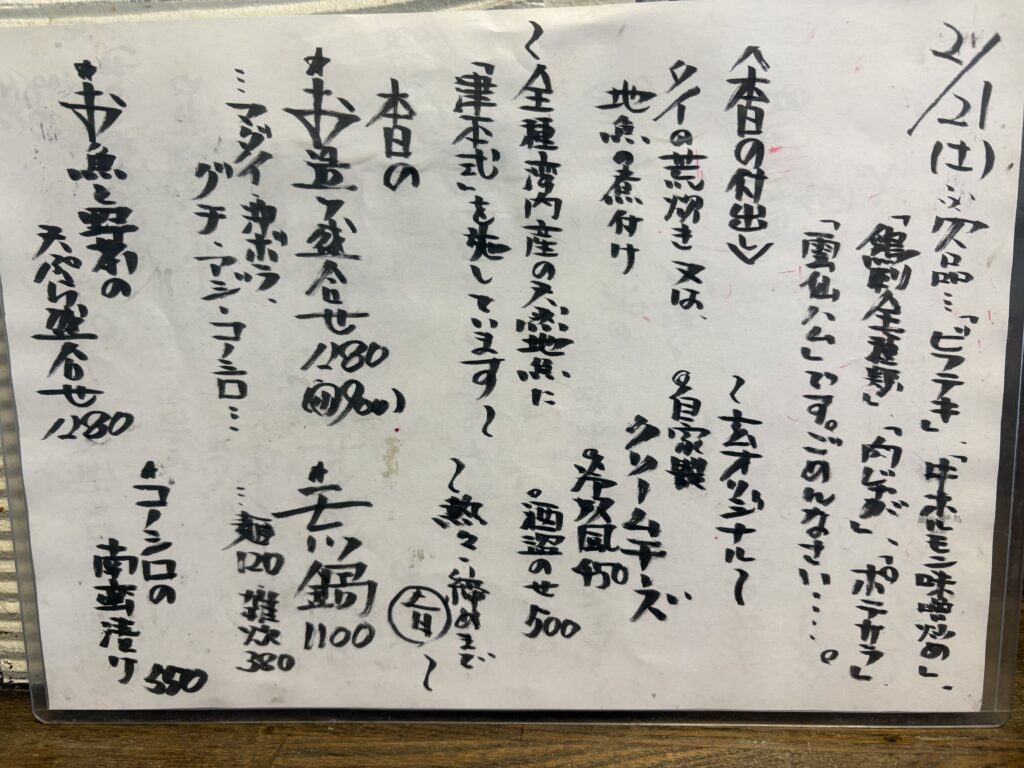 2/21(土)※欠品…「ビフテキ」、「牛ホルモン味噌炒め」、
「鶏刺全種類」「肉じゃが」、「ポテサラ」
「雲仙ハム」です。ごめんなさい….。
<本日の付出し>
タイの荒炊き 又は、
地魚の煮付け
〜全種湾内産の天然地魚に
「津本式」を施しています〜
本日の
★お造り盛合せ 1280
…マダイ・赤ボラ、
グチ・アジ・コノシロ…
★お魚と野菜の
天ぷら盛合せ 1280
〜玄オリジナル〜
◦自家製
クリームチーズ
冷奴風 450
◦酒盗のせ 500
〜熱々、締めまで
〜
★玄鍋 1100
…麺120 雑炊 380
★コノシロの
南蛮漬け 550